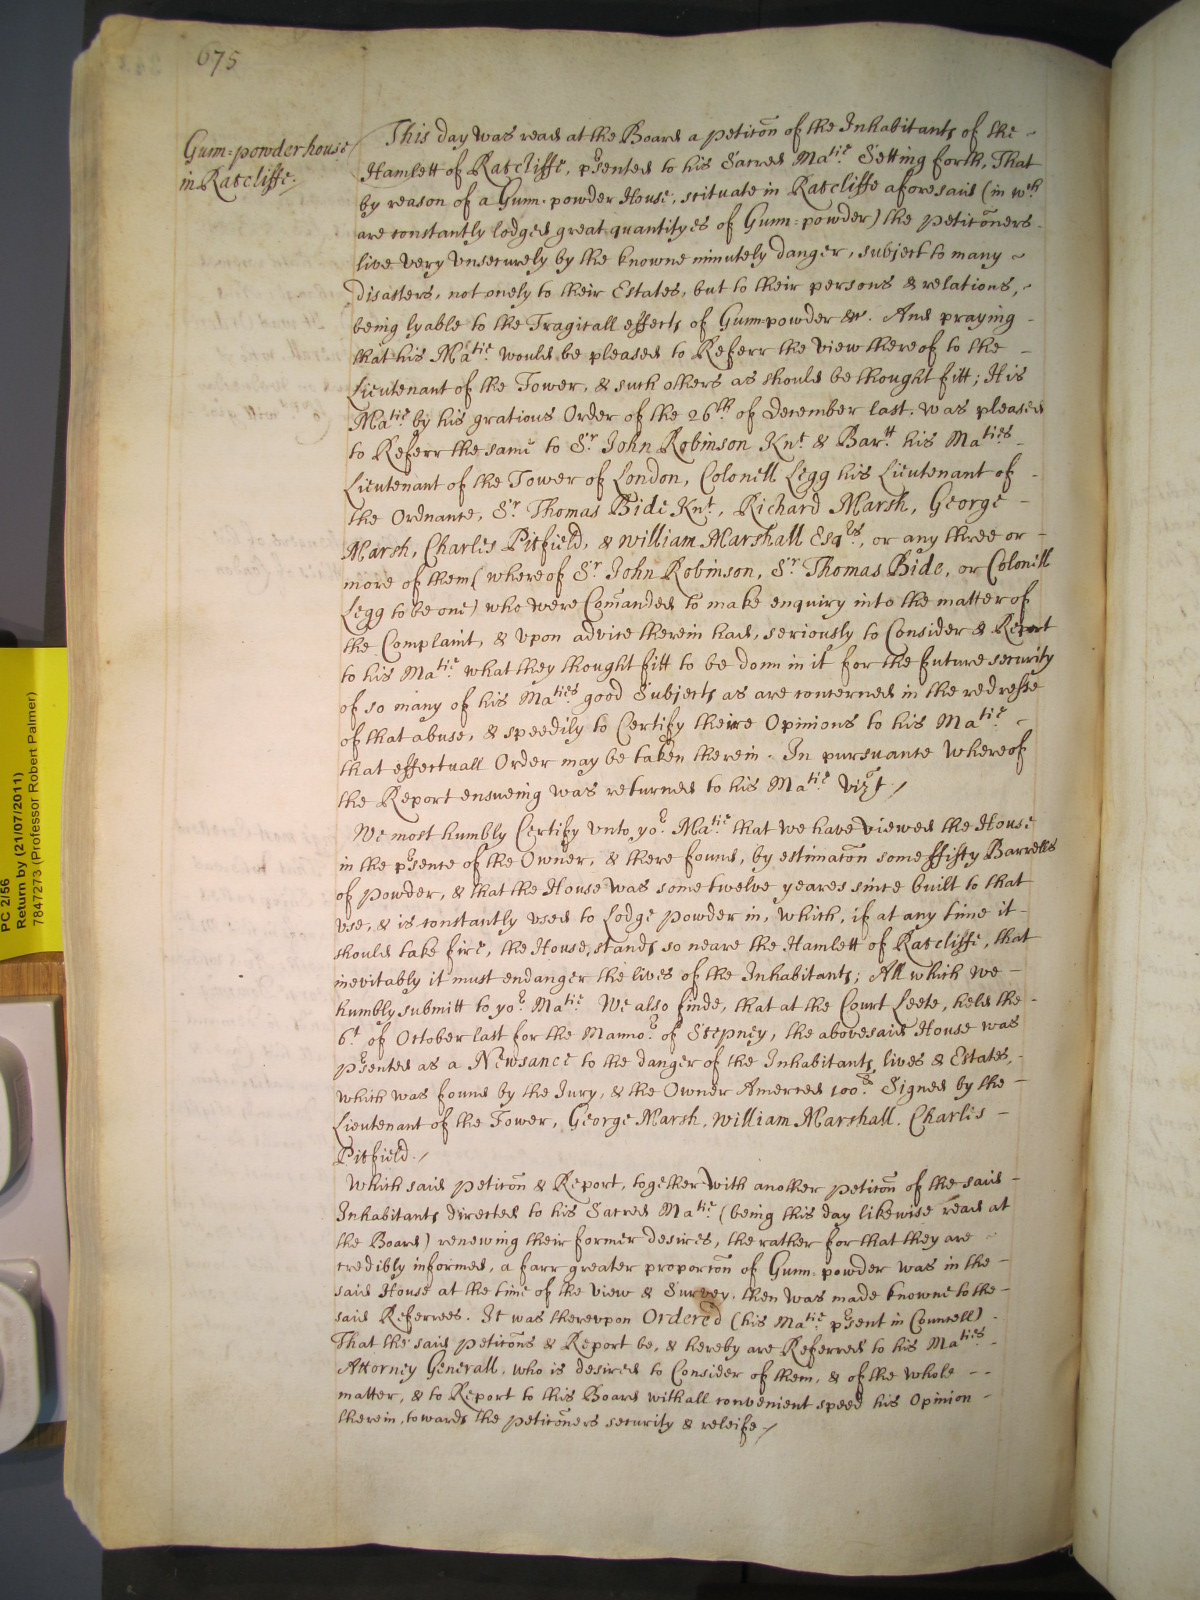 675
Gunn=powder house
in Ratcliffe.
This day was read at the Board a peticōn of the Inhabitants of the
Hamlett of Ratcliffe, p̲sented to his Sacred Ma:tie Setting forth, That
by reason of a Gunn=powder House, scituate in Ratcliffe aforesaid (in wch
are constantly lodged great quantityes of Gunn=powder) the peticōners
live very vnsecurely by the knowne minutely danger, subject to many
disasters, not onely to their Estates, but to their persons & relations,
being lyable to the Tragicall effects of Gunnpowder &c. And praying
that his Ma:tie would be pleased to Referr the view thereof to the
Lieutenant of the Tower, & such others as should be thought fitt; His
Ma:tie by his gratious Order of the 26th of December last, was pleased
to Referr the same to Sr John Robinson Knt & Bart his Ma:ties
Lieutenant of the Tower of London, Colonell Legg his Lieutenant of
the Ordnance, Sr Thomas Bide Knt, Richard Marsh, George
Marsh, Charles Pitfield, & William Marshall Esqrs, or any three or
more of them (whereof Sr John Robinson, Sr Thomas Bide, or Colonell
Legg to be one) who were Com̄anded to make enquiry into the matter of
the Complaint, & vpon advice therein had, seriously to Consider & Report
to his Ma:tie what they thought fitt to be donn in it for the future security
of so many of his Ma:ties good Subjects as are concerned in the redresse
of that abuse, & speedily to Certify theire Opinions to his Ma:tie
that effectuall Order may be taken therein. In pursuance whereof
the Report ensueing was returned to his Ma:tie vizt /
We most humbly Certify vnto yor Ma:tie that we have viewed the House
in the p̲sence of the Owner, & there found, by estimacōn some ffifty Barrells
of powder, & that the House was some twelve yeares since built to that
vse, & is constantly vsed to Lodge powder in, which, if at any time it
should take fire, the House, stands so neare the Hamlett of Ratcliffe, that
inevitably it must endanger the lives of the Inhabitants; All which we
humbly submitt to yor Ma:tie We also finde, that at the Court Leete, held the
6t of October last for the Mannor of Stepney, the abovesaid House was
p̲sented as a Newsance to the danger of the Inhabitants, lives & Estates,
which was found by the Jury, & the Owner Amerced 100s Signed by the
Lieutenant of the Tower, George Marsh, William Marshall, Charles
Pitfield. /
Which said peticōn & Report, together with another peticōn of the said
Inhabitants directed to his Sacred Ma:tie (being this day likewise read at
the Board) renewing their former desires, the rather for that they are
credibly informed, a farr greater proporcōn of Gunn=powder was in the
said House at the time of the view & Survey, then was made knowne to the
said Referrees. It was therevpon Ordered (his Ma:tie p̲sent in Councell)
That the said peticōns & Report be, & hereby are Referred to his Ma:ties
Attorney Generall, who is desired to Consider of them, & of the whole
matter, & to Report to this Board withall convenient speed his Opinion
therein, towards the peticōners security & releife /
PC 2/56
Return by (21/07/2011)
7847273 (Professor Robert Palmer)